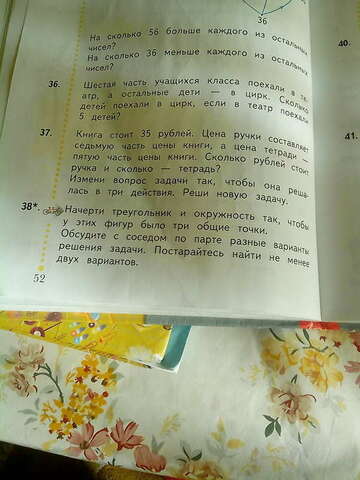 36
На сколько 56 больше каждого из остальных
чисел?
На сколько 36 меньше каждого из остальных
чисел?
36. Шестая часть учащихся класса поехали в те-
атр, а остальные дети — в цирк. Сколько
детей поехали в цирк, если в театр поехали
5 детей?
37. Книга стоит 35 рублей. Цена ручки составляет
седьмую часть цены книги, а цена тетради —
пятую часть цены книги. Сколько рублей стоит
ручка и сколько — тетрадь?
Измени вопрос задачи так, чтобы она реша-
лась в три действия. Реши новую задачу.
38*. Начерти треугольник и окружность так, чтобы
у этих фигур было три общие точки.
Обсудите с соседом по парте разные варианты
решения задачи. Постарайтесь найти не менее
двух вариантов.
52
40.
41.